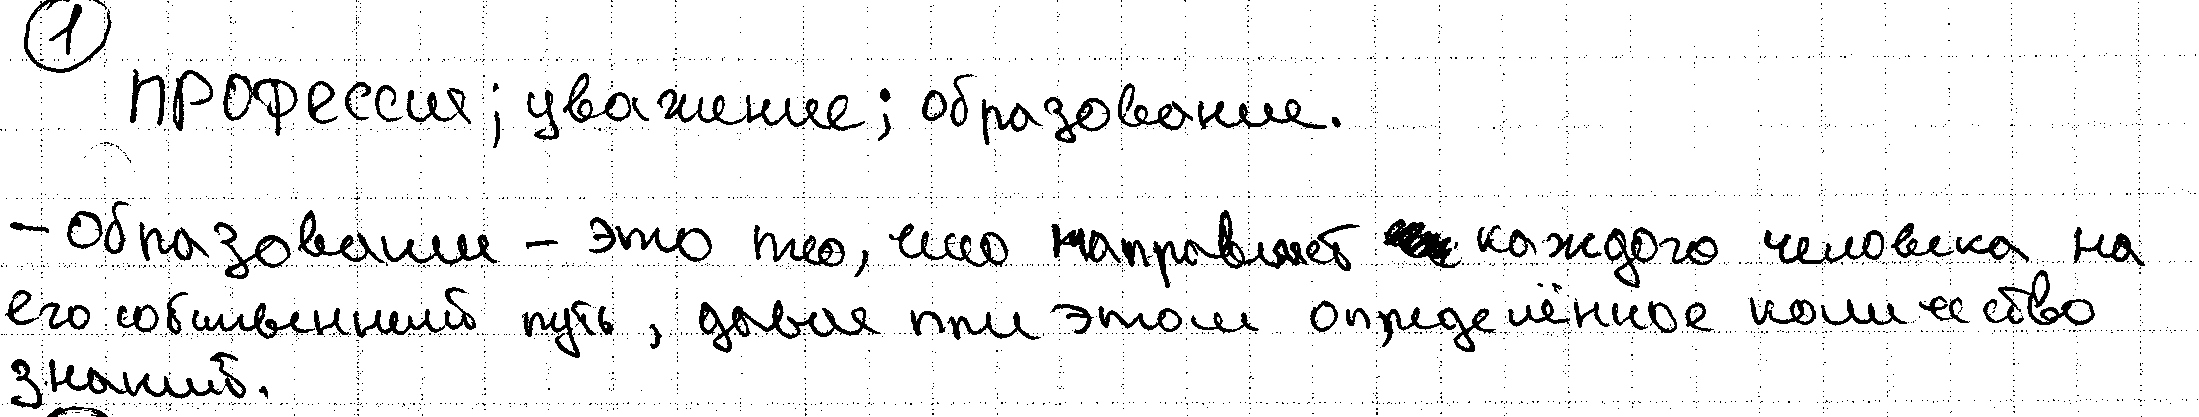 1
профессия; уважение; образование.
- Образование - это то, что направляет каждого человека на
его собственный путь, давая при этом определённое количество
знаний.